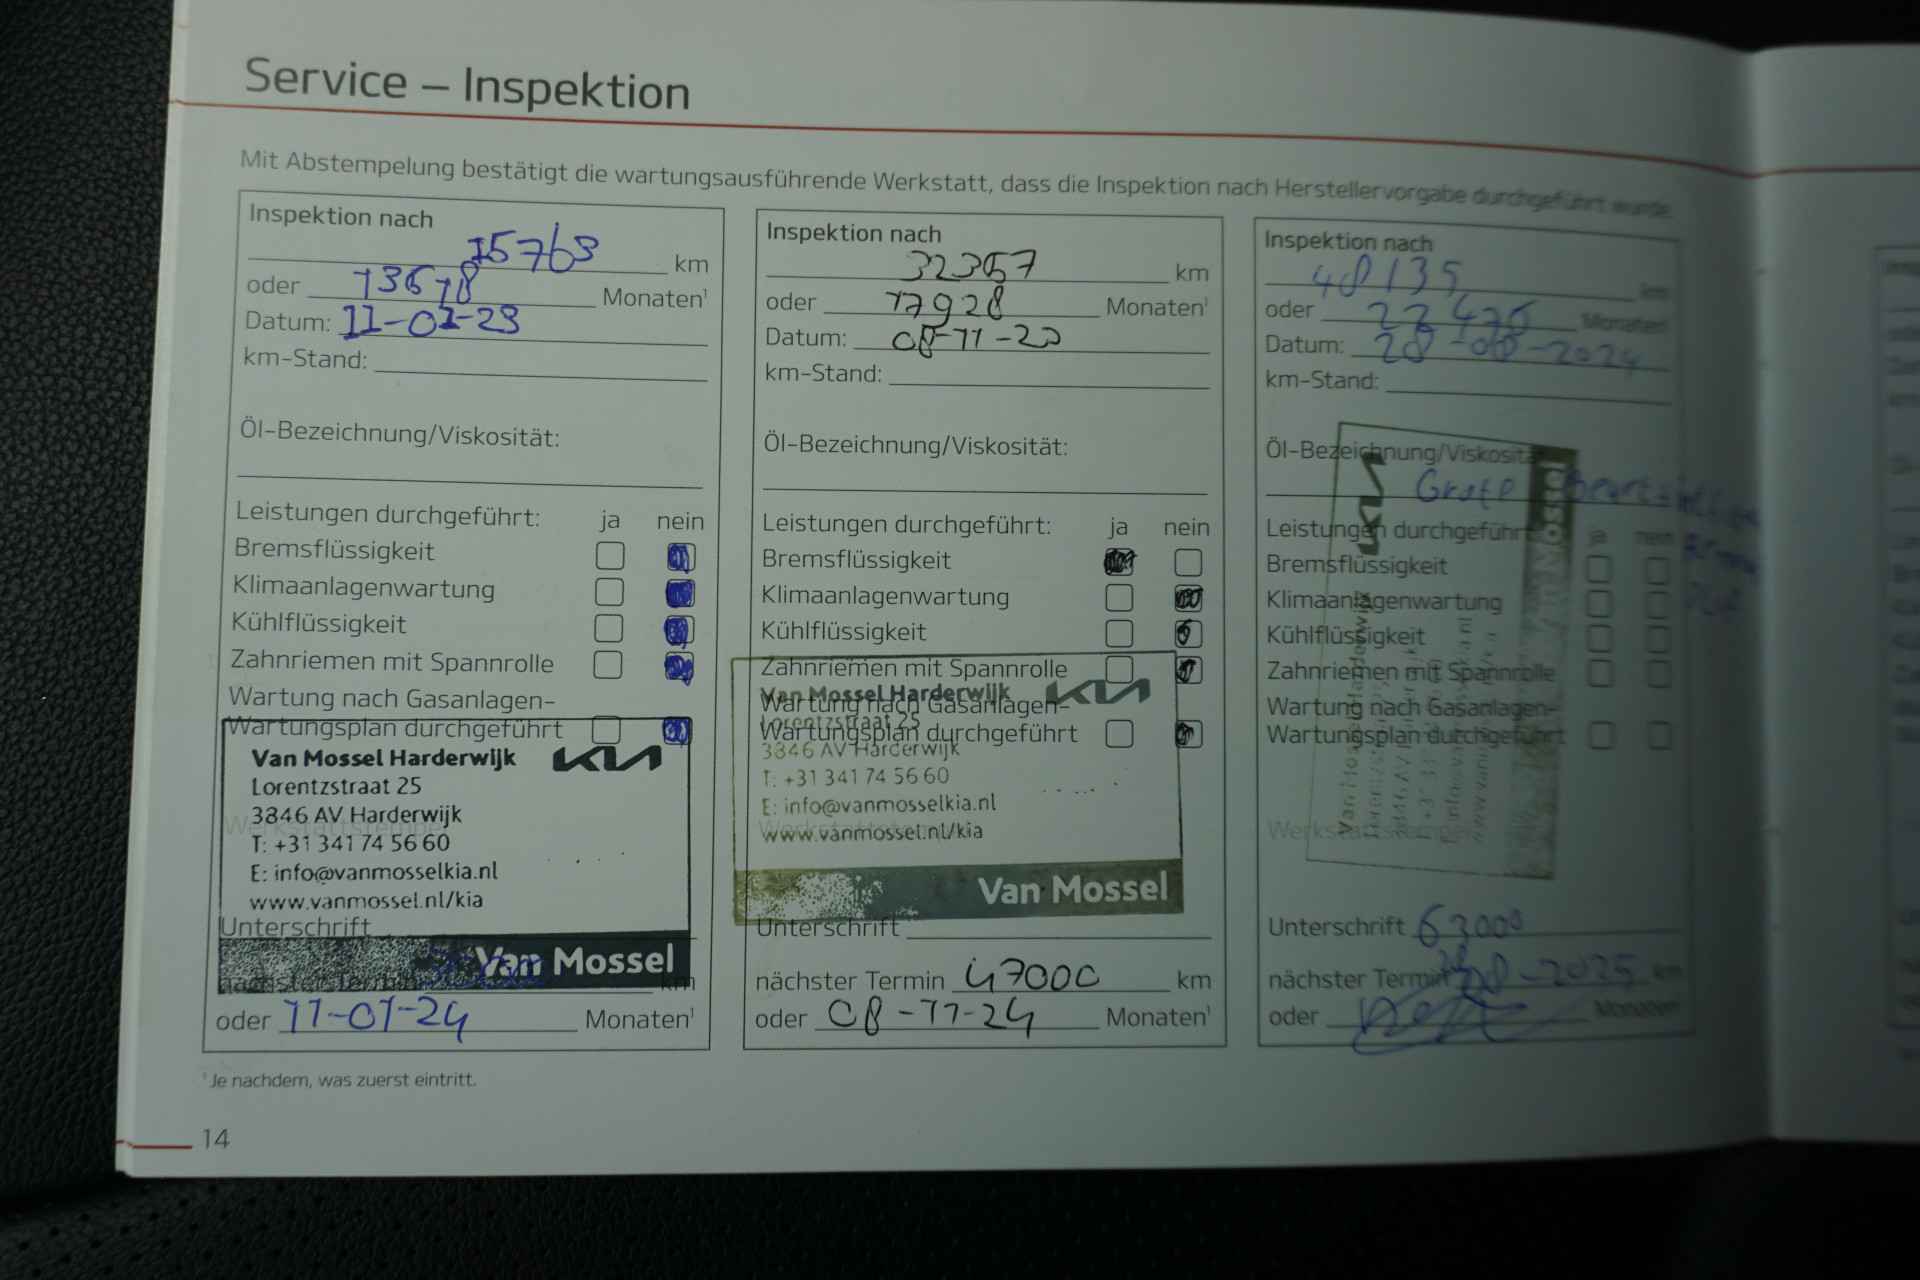 Service – Inspektion
Mit Abstempelung bestätigt die wartungsausführende Werkstatt, dass die Inspektion nach Herstellervorgabe durchgeführt wurde.
Inspektion nach
15763 km
oder 13678 Monaten¹
Datum: 11-01-23
km-Stand:
Öl-Bezeichnung/Viskosität:
Leistungen durchgeführt: ja nein
Bremsflüssigkeit
Klimaanlagenwartung
Kühlflüssigkeit
Zahnriemen mit Spannrolle
Wartung nach Gasanlagen-
Wartungsplan durchgeführt
Van Mossel Harderwijk KIA
Lorentzstraat 25
3846 AV Harderwijk
Werkstattstempel
T: +31 341 74 56 60
E: info@vanmosselkia.nl
www.vanmossel.nl/kia
Unterschrift
Van Mossel
nächster Termin km
oder 11-01-24 Monaten¹
Inspektion nach
32367 km
oder 17928 Monaten¹
Datum: 08-11-23
km-Stand:
Öl-Bezeichnung/Viskosität:
Leistungen durchgeführt: ja nein
Bremsflüssigkeit
Klimaanlagenwartung
Kühlflüssigkeit
Zahnriemen mit Spannrolle
Van Mossel Harderwijk KIA
Wartung nach Gasanlagen-
Lorentzstraat 25
Wartungsplan durchgeführt
3846 AV Harderwijk
T: +31 341 74 56 60
E: info@vanmosselkia.nl
www.vanmossel.nl/kia
Van Mossel
Unterschrift
nächster Termin 47000 km
oder 08-11-24 Monaten¹
Inspektion nach
48135 km
oder Monaten¹
Datum: 28-08-2024
km-Stand:
Öl-Bezeichnung/Viskosität:
Grote
Leistungen durchgeführt: ja nein
Bremsflüssigkeit
Klimaanlagenwartung
Kühlflüssigkeit
Zahnriemen mit Spannrolle
Wartung nach Gasanlagen-
Wartungsplan durchgeführt
KIA
Van Mossel Harderwijk
Van Mossel
Werkstattstempel
Unterschrift 63000
nächster Termin 28-08-2025 km
oder Monaten
¹ Je nachdem, was zuerst eintritt.
14